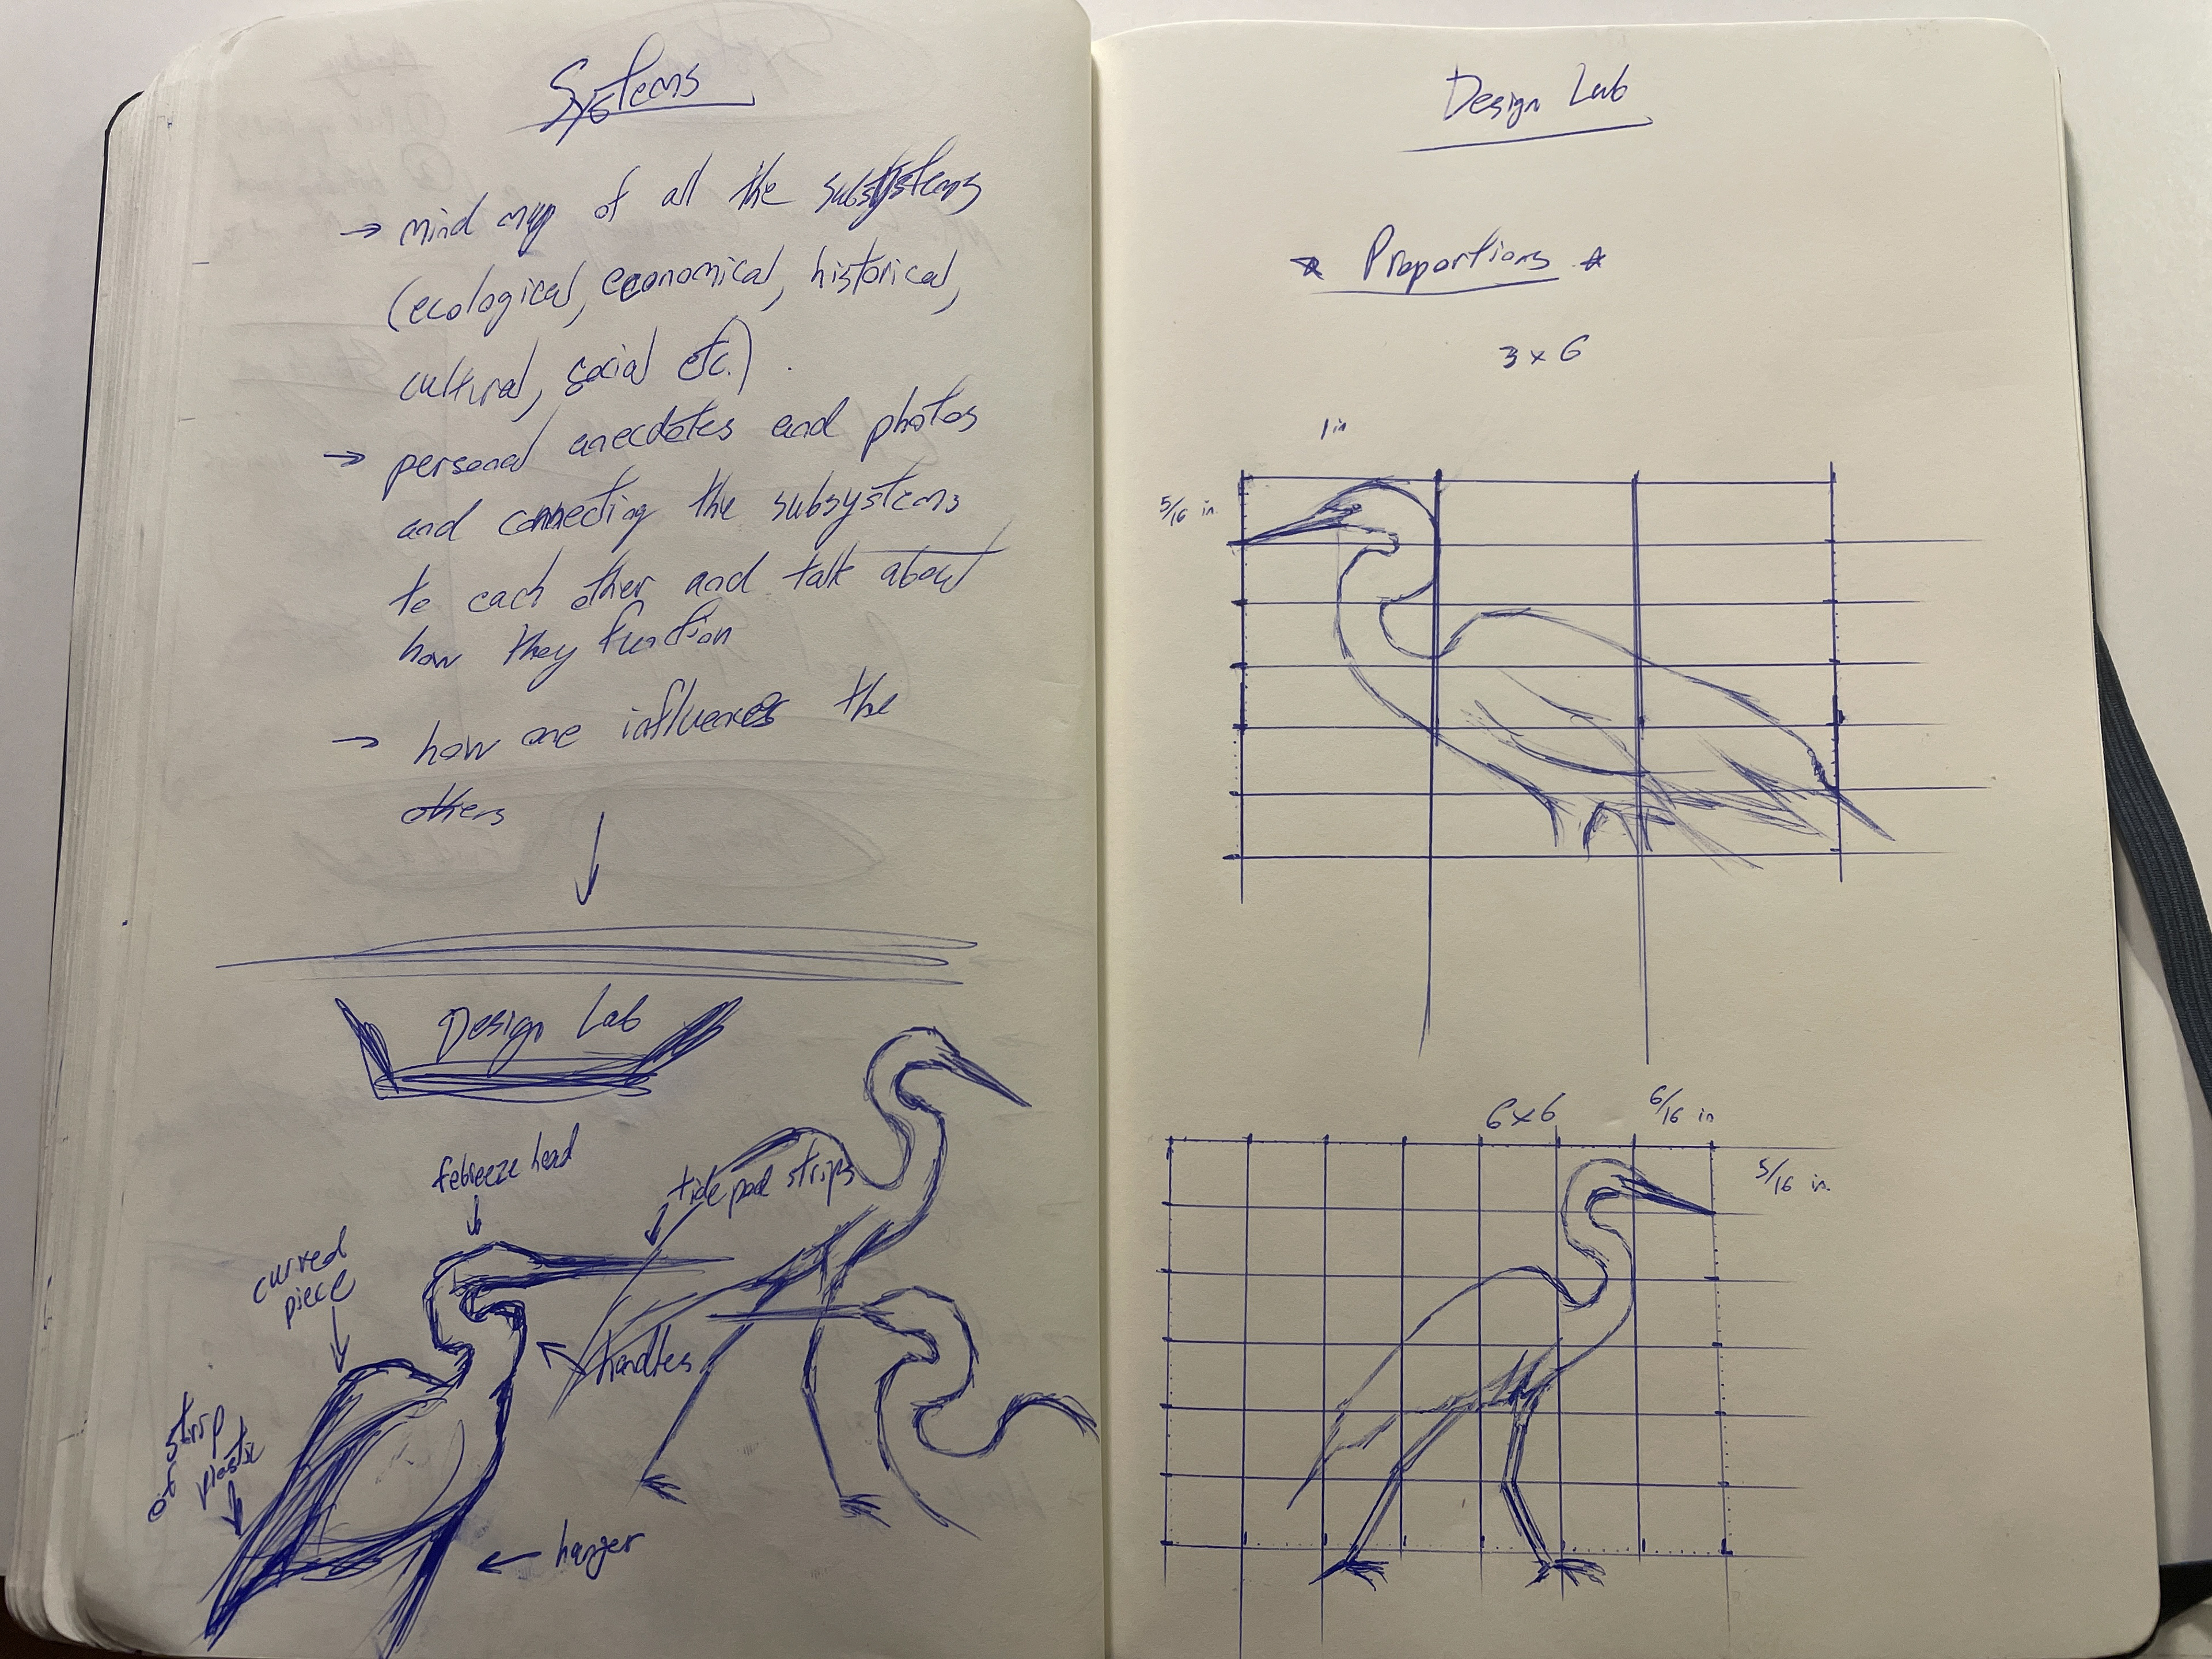 Systems
→ mind map of all the subsystems
(ecological, economical, historical,
cultural, social etc.)
→ personal anecdotes and photos
and connecting the subsystems
to each other and talk about
how they function
→ how one influences the
others
Design Lab
febreeze head
tide pod strips
curved
piece
handles
strip
of plastic
hanger
Design Lab
* Proportions *
3 x 6
1 in
5/16 in.
6x6
6/16 in
5/16 in.